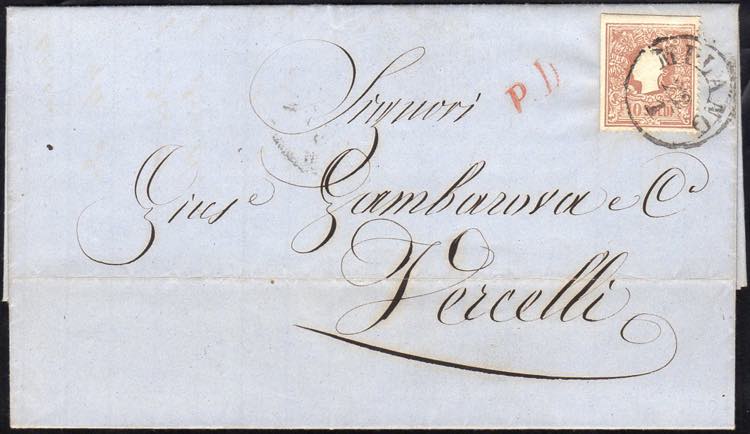 P.D.
10 SOLDI
MILANO
Signori
Gius.e Gambarova e C.o
Vercelli